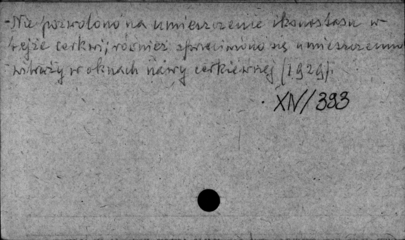 -Nie pozwolono na umieszczenie ikonostasu w
tejże cerkwi, również sprzeciwiono się umieszczeniu
witraży w oknach nawy cerkiewnej (1929).
XIV/393